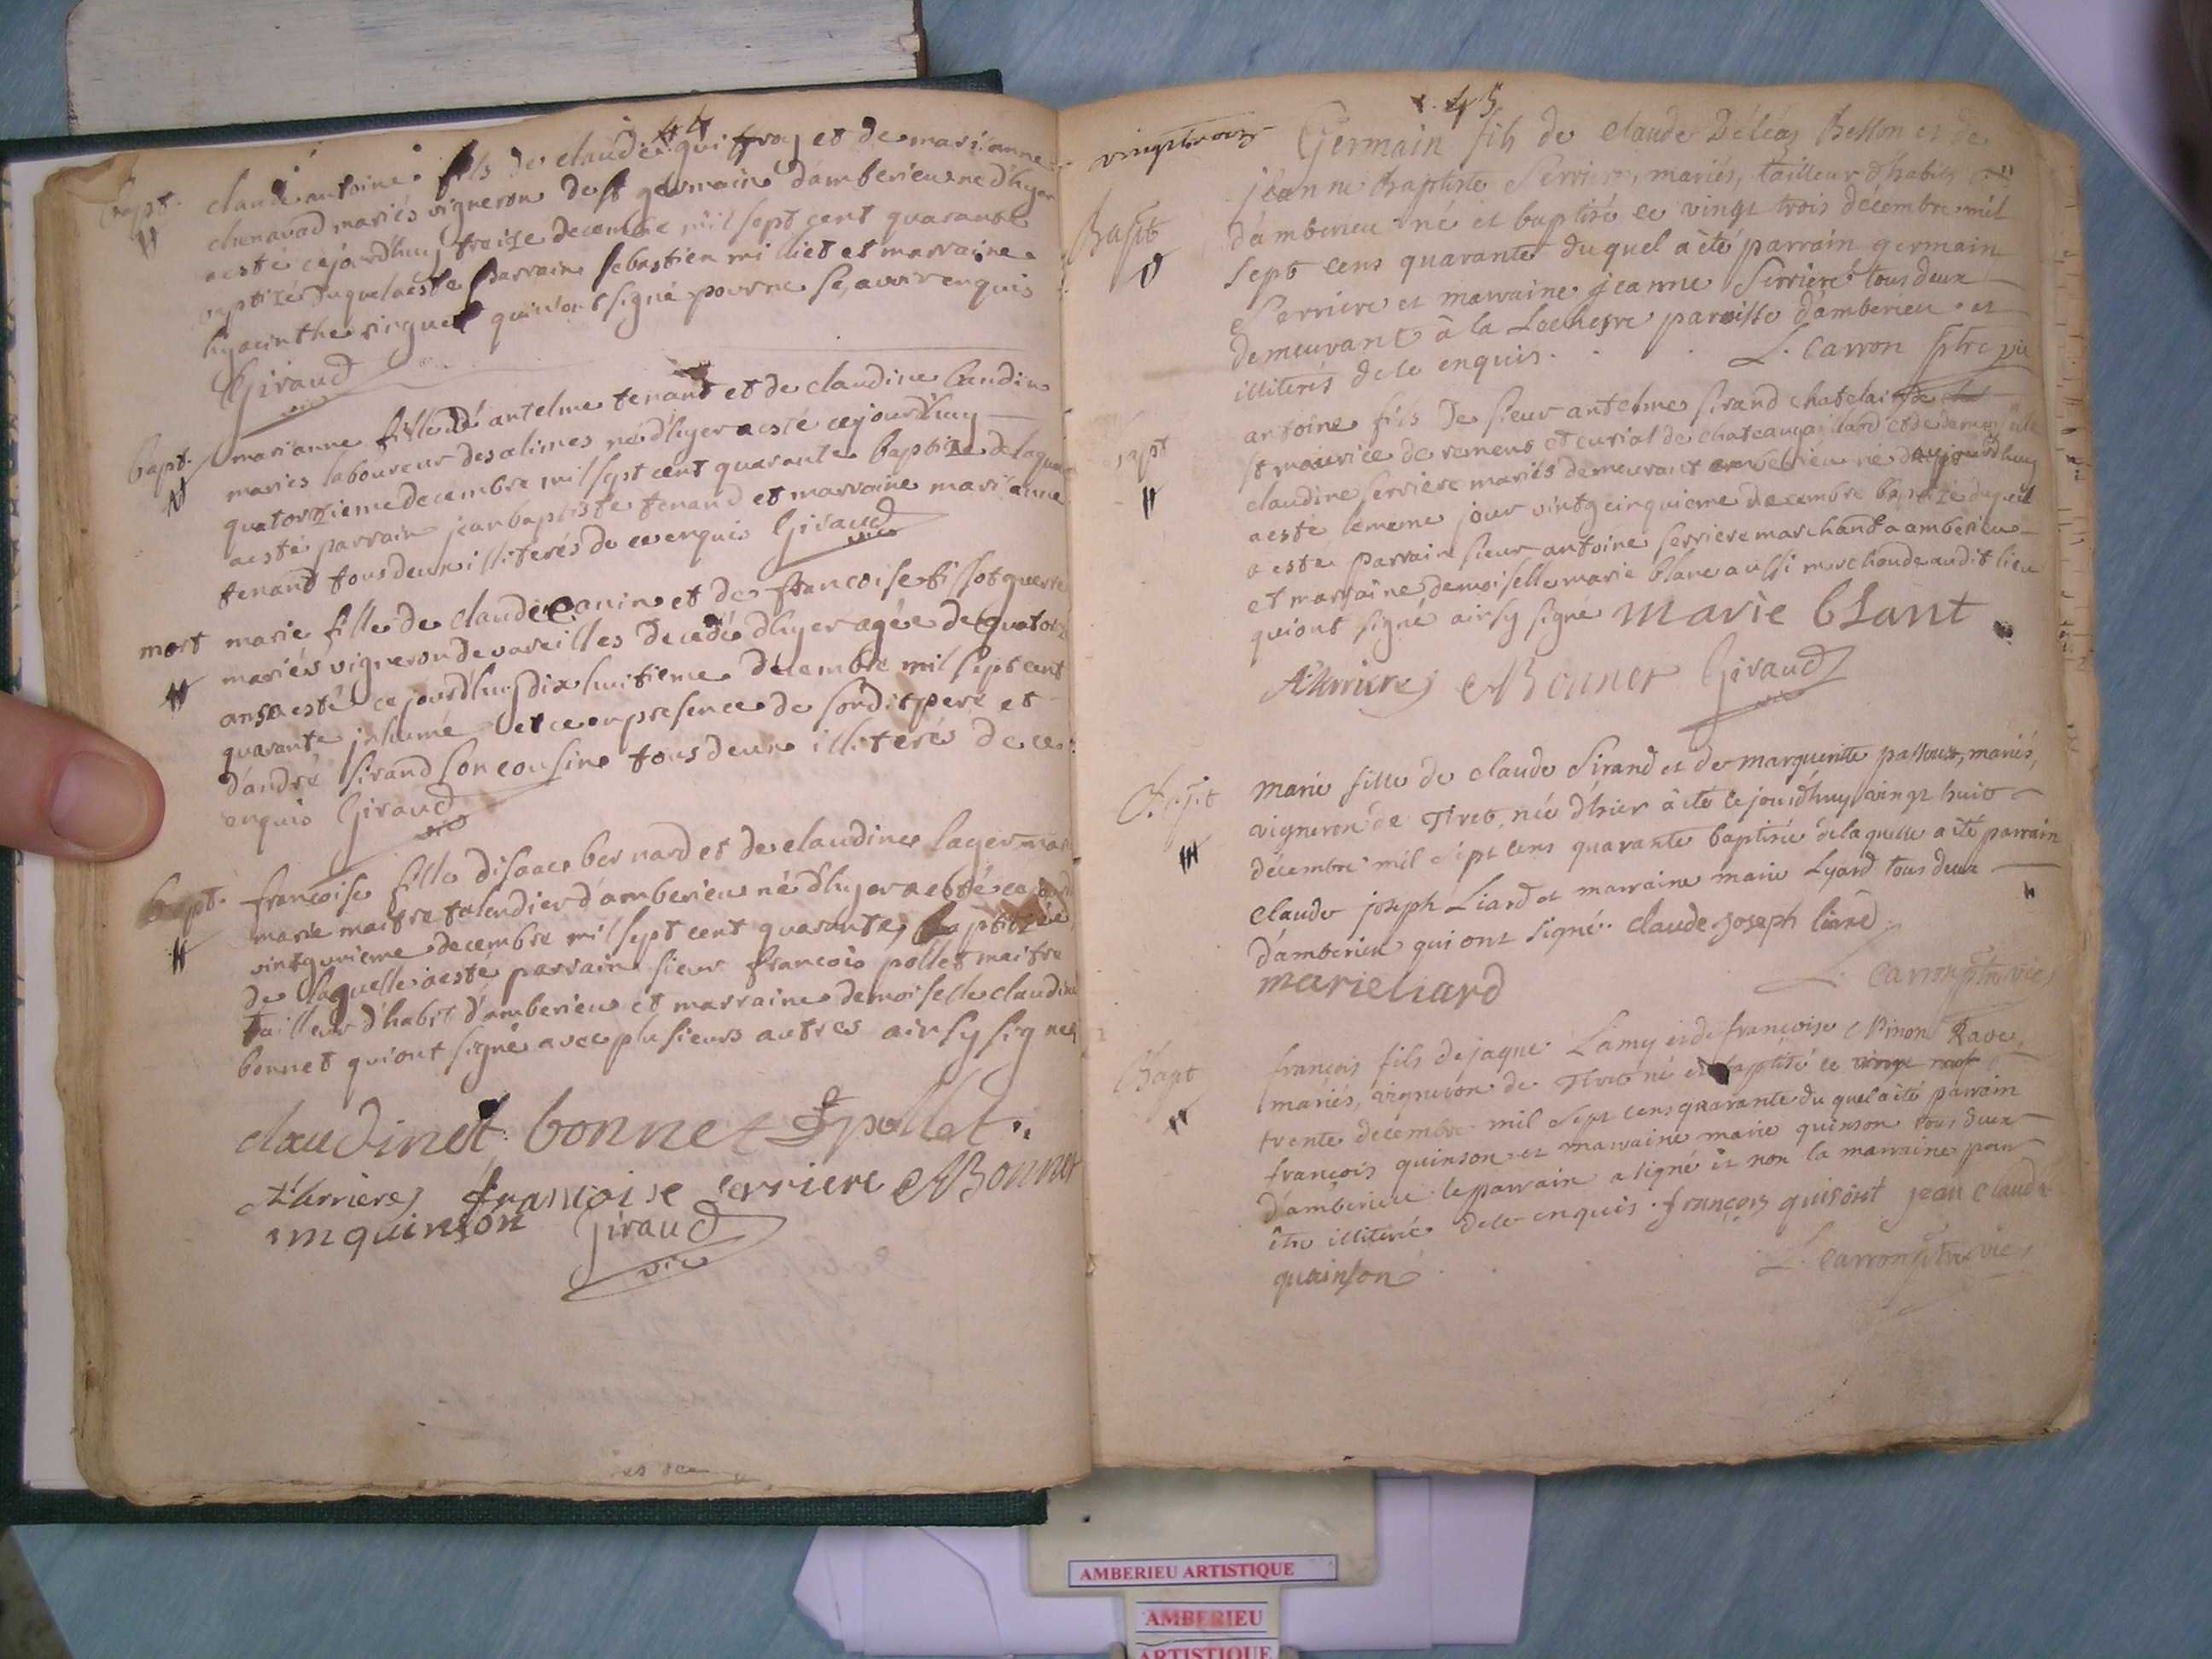 44
bapt.
claude antoine fils de claude guifray et de marianne
chenavad mariés vigneron de st germain d'amberieu ne d'hyer
aesté cejourd'huy treize decembre mil sept cent quarante
baptizé duquel aesté parrain sebastien milliet et marraine
hyacinthe singuet qui n'ont signé pour ne sçavoir enquis
Giraud
vic
bapt.
marianne fille dé antelme tenand et de claudine
mariés laboureur des alimes né d'hyer aesté cejourd'huy
quatorzieme decembre mil sept cent quarante baptizé de laquelle
aesté parrain jean baptiste tenand et marraine marianne
tenand tous deux illiterés de ce enquis Giraud
vic
mort
marie fille de claude Canin et de francoise
mariés vigneron de vareilles decedé d'hyer agée de quatorze
ans aesté ce jourd'huy dix huitieme decembre mil sept cent
quarante inhumé et ce en presence de sondit pere et
d'andré sirand son cousin tous deux illiterés de ce
enquis Giraud
vic
bapt.
francoise fille d'isaac bernard et de claudine lager
marié maitre talendier d'amberieu né d'hyer aesté cejourd
vintgunieme decembre mil sept cent quarante baptizée
de laquelle aesté parrain sieur francois pollet maitre
tailleur d'habit d'amberieu et marraine demoiselle claudine
bonnet qui ont signé avec plusieurs autres ainsy signes
claudinet bonnet pollet
serriere francoise serriere Bonnet
quinson Giraud
vic
45
vingt trois
Bapt
Germain fils de Claude Déléaz Besson et de
jeanne baptiste Serriere, mariés, tailleur d'habits
d'amberieu né et baptisé ce vingt trois décembre mil
sept cens quarante duquel a été parrain germain
Serriere et marraine jeanne Serriere tous deux
demeurant à la paroisse d'amberieu et
illiterés de ce enquis. L. Carron ptre vic
bapt
antoine fils de sieur antelme sirand chatelain
st maurice de remens et curial de chateaugaillard et de demoiselle
claudine serriere mariés demeurant amberieu né daujourdhuy
aesté le meme jour vintg cinquieme decembre baptizé duquel
a esté parrain sieur antoine serriere marchand a amberieu
et marraine demoiselle marie blanc aussi marchande audit lieu
qui ont signé ainsy signé marie blant
A Serriere Bonnet Giraud
vic
Bapt
Marie fille de claude Sirand et de marguerite mariés,
vigneron de Tiret, née d'hier à été ce jourd'huy vingt huit
décembre mil sept cens quarante baptisée de laquelle a été parrain
claude joseph Liard et marraine marie Lyard tous deux
d'amberieu qui ont signé. claude joseph liard
marie liard
L. Carron ptre vic
Bapt
françois fils de jaque Lamy et de françoise Rave,
mariés, vigneron de Tiret né et baptisé ce
trente decembre mil sept cens quarante du quel a été parrain
françois quinson et marraine marie quinson tous deux
d'amberieu le parrain a signé et non la marraine pour
être illiterée de ce enquis. françois quisont jean claude
quainson
L. Carron ptre vic
AMBERIEU ARTISTIQUE
AMBERIEU
ARTISTIQUE